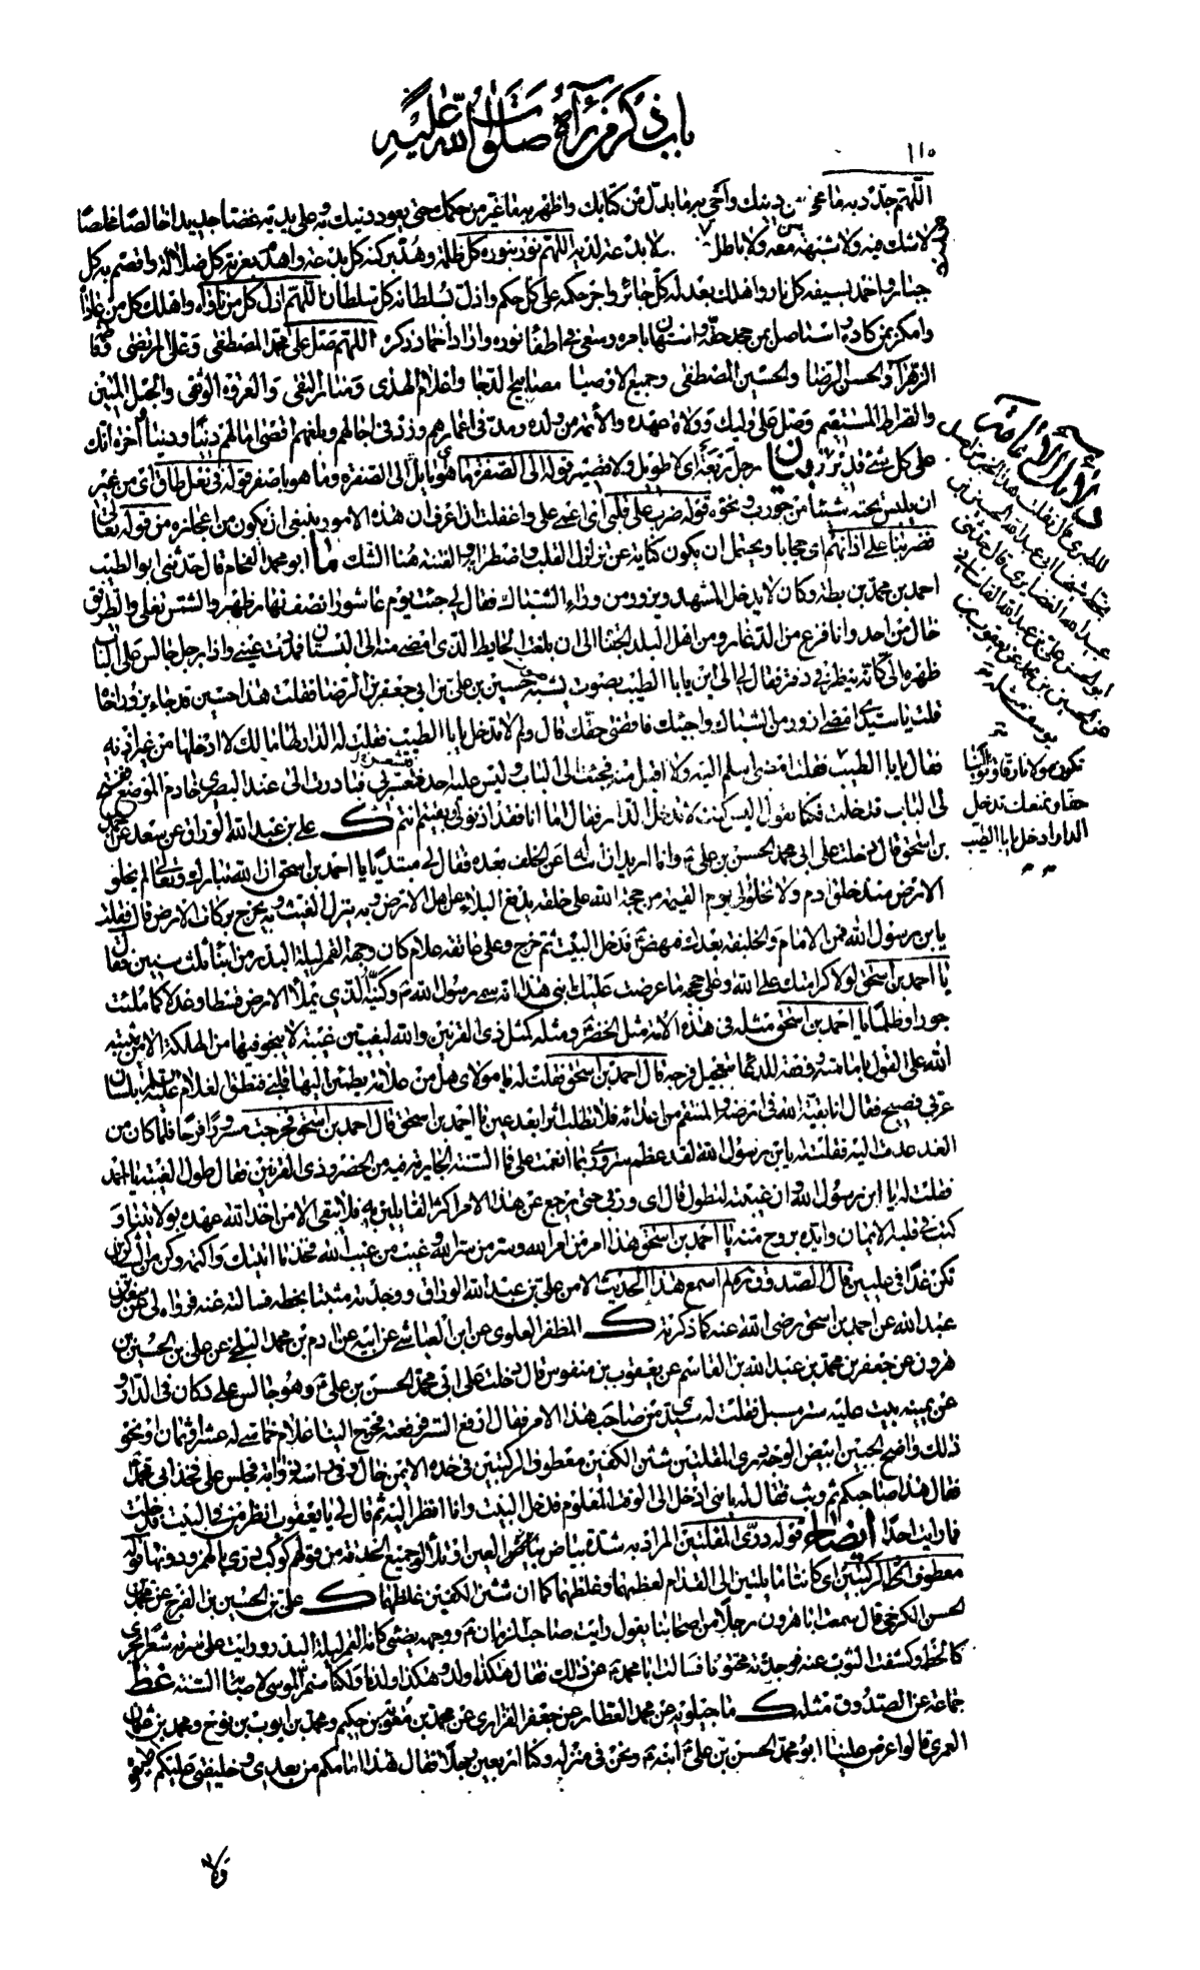 باب ذكر من رآه صلوات الله عليه
١١٥
اللهم جدد به ما محي من دينك وأحي به ما بدل من كتابك واظهر به ما غير من حكمك حتى يعود دينك به وعلى يديه غضا جديدا خالصا مخلصا
لا شك فيه ولا شبهة معه ولا باطل عنده ولا بدعة لديه اللهم نور بنوره كل ظلمة وهد بركنه كل بدعة واهدم بعزته كل ضلالة واقصم به كل
جبار واخمد بسيفه كل نار واهلك بعدله كل جائر واجر حكمه على كل حكم واذل بسلطانه كل سلطان اللهم اذل كل من ناواه واهلك كل من عاداه
وامكر بمن كاده واستأصل من جحد حقه واستهان بامره وسعى في اطفاء نوره واراد اخماد ذكره اللهم صل على محمد المصطفى وعلي المرتضى وفاطمة
الزهراء والحسن الرضا والحسين المصطفى وجميع الاوصياء مصابيح الدجا واعلام الهدى ومنار التقى والعروة الوثقى والحبل المتين
والصراط المستقيم وصل على وليك وولاة عهده والائمة من ولده ومد في اعمارهم وزد في اجالهم وبلغهم اقصى امالهم دينا ودنيا وآخرة انك
على كل شئ قدير بيان رجل ربعة اي لا طويل ولا قصير قوله الى الصفرة ما هو اي يايل الى الصفرة وما هو باصفر قوله في نعل طاق اي من غير
ان يلبس تحته شيئا من جورب ونحوه قوله ضرب على قلبي اي اغمي علي واغفلت ان اعرف ان هذه الامور ينبغي ان يكون من اعجازه من قوله تعالى
فضربنا على اذانهم اي حجابا ويحتمل ان يكون كناية عن تزلزل القلب واضطرابه والفتنة هنا الشك ما ابو محمد الفحام قال حدثني ابو الطيب
احمد بن محمد بن بطة وكان لا يدخل المشهد ويزور من وراء الشباك فقال لي جئت يوم عاشورا نصف نهار ظهر والشمس تغلي والطريق
خال من احد وانا فزع من الدعار ومن اهل البلد الجفاة الى ان بلغت الحايط الذي امضي منه الى البستان فمددت عيني واذا برجل جالس على الباب
ظهره الي كانه ينظر في دفتر فقال لي الى اين يا ابا الطيب بصوت يشبه صوت حسين بن علي بن ابي جعفر بن الرضا فقلت هذا حسين قد جاء يزور اخاه
قلت يا سيدي امضي ازور من الشباك واجيئك فاقضي حقك قال ولم لا تدخل يا ابا الطيب فقلت له الدار لها مالك لا ادخلها من غير اذنه
فقال يا ابا الطيب فقلت امضي اسلم اليه ولا اقبل منه فجئت الى الباب وليس عليه احد فتعسر بي فبادرت الى عند البصري خادم الموضع ففتح
لي الباب فدخلت فكنا نقول اليس كنت لا تدخل الدار فقال اما انا فقد اذنوا لي وبقيتم انتم ك علي بن عبد الله الوراق عن سعد عن احمد
بن اسحق قال دخلت على ابي محمد الحسن بن علي ع وانا اريد ان اسأله عن الخلف بعده فقال لي مبتدئا يا احمد بن اسحق ان الله تبارك وتعالى لم يخلو
الارض منذ خلق ادم ولا تخلو الى يوم القيمة من حجة الله على خلقه به يدفع البلاء عن اهل الارض وبه ينزل الغيث وبه يخرج بركات الارض قال فقلت
يا بن رسول الله فمن الامام والخليفة بعدك فنهض ع فدخل البيت ثم خرج وعلى عاتقه غلام كان وجهه القمر ليلة البدر من ابناء ثلث سنين فقال
يا احمد بن اسحق لولا كرامتك على الله وعلى حججه ما عرضت عليك ابني هذا انه سمي رسول الله ص وكنيه الذي يملأ الارض قسطا وعدلا كما ملئت
جورا وظلما يا احمد بن اسحق مثله في هذه الامة مثل الخضر ع ومثله كمثل ذي القرنين والله ليغيبن غيبة لا ينجو فيها من الهلكة الا من يثبته
الله على القول بامامته ووفقه للدعاء بتعجيل فرجه قال احمد بن اسحق فقلت له يا مولاي هل من علامة يطمئن اليها قلبي فنطق الغلام عليه السلم بلسان
عربي فصيح فقال انا بقية الله في ارضه والمنتقم من اعدائه فلا تطلب اثرا بعد عين يا احمد بن اسحق قال احمد بن اسحق فخرجت مسرورا فرحا فلما كان من
الغد عدت اليه فقلت له يا بن رسول الله لقد عظم سروري بما انعمت علي فما السنة الجارية فيه من الخضر وذي القرنين فقال طول الغيبة يا احمد
فقلت له يا ابن رسول الله وان غيبته لتطول قال اي وربي حتى يرجع عن هذا الامر اكثر القايلين به فلا يبقى الا من اخذ الله عهده بولايتنا و
كتب في قلبه الايمان وايده بروح منه يا احمد بن اسحق هذا امر من امر الله وسر من سر الله وغيب من غيب الله فخذ ما اتيتك واكتمه وكن من الشاكرين
تكن غدا في عليين قال الصدوق ره لم اسمع هذا الحديث الا من علي بن عبد الله الوراق ووجدته مثبتا بخطه فسالته عنه فرواه لي عن سعد بن
عبد الله عن احمد بن اسحق رضي الله عنه كما ذكرته ك المظفر العلوي عن ابن العياشي عن ابيه عن ادم بن محمد البلخي عن علي بن الحسين بن
هرون عن جعفر بن محمد بن عبد الله بن القاسم عن يعقوب بن منفوس قال دخلت على ابي محمد الحسن بن علي ع وهو جالس على دكان في الدار و
عن يمينه بيت عليه ستر مسبل فقلت له سيدي من صاحب هذا الامر فقال ارفع الستر فرفعته فخرج الينا غلام خماسي له عشر او ثمان او نحو
ذلك واضح الجبين ابيض الوجه دري المقلتين شثن الكفين معطوف الركبتين في خده الايمن خال وفي رأسه ذوابة فجلس على فخذ ابي محمد ع
فقال هذا صاحبكم ثم وثب فقال له يا بني ادخل الى الوقت المعلوم فدخل البيت وانا انظر اليه ثم قال لي يا يعقوب انظر من في البيت فدخلت
فما رايت احدا ايضاح قوله دري المقلتين المراد به شدة بياض العين او تلألؤ جميع الحدقة من قولهم كوكب دري بالهمز ودونها قوله
معطوف الركبتين اي كانتا مايلتين الى القدام لعظمهما وغلظهما كما ان شثن الكفين غلظهما ك علي بن الحسين بن الفرج عن محمد بن
الحسن الكرخي قال سمعت ابا هرون رجلا من اصحابنا يقول رايت صاحب الزمان ع ووجهه يضئ كانه القمر ليلة البدر ورايت على سرته شعرا يجري
كالخط وكشفت الثوب عنه فوجدته مختونا فسالت ابا محمد ع عن ذلك فقال هكذا ولد وهكذا ولدنا ولكنا سنمر الموسى لاصابة السنة غط
جماعة عن الصدوق مثله ك ماجيلويه عن محمد العطار عن جعفر الفزاري عن محمد بن معوية بن حكيم ومحمد بن ايوب بن نوح ومحمد بن عثمان
العمري قالوا عرض علينا ابو محمد الحسن بن علي ع ابنه ع ونحن في منزله وكنا اربعين رجلا فقال هذا امامكم من بعدي وخليفتي عليكم اطيعوه
ولا
دلائل الامامة
للطبري قال نقلت هذا الخبر من اصل
بخط شيخنا ابي عبد الله الحسين بن
عبيد الله الغضايري قال حدثني
ابو الحسن علي بن عبد الله القاساني
عن الحسين بن محمد عن يعقوب بن
يوسف مثله
تكون مولانا رقا وتوالينا
حقا ونمنعك تدخل
الدار ادخل يا ابا الطيب